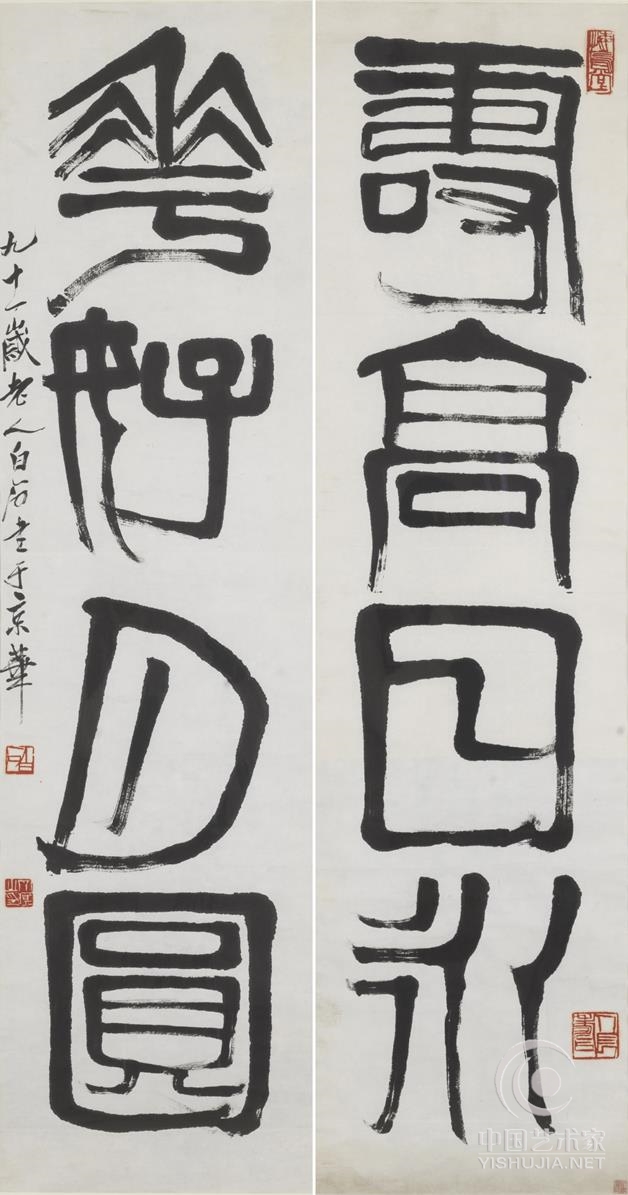 壽高日永
花好月圓
九十一歲老人白石書于京華
中国艺术家
YISHUJIA.NET